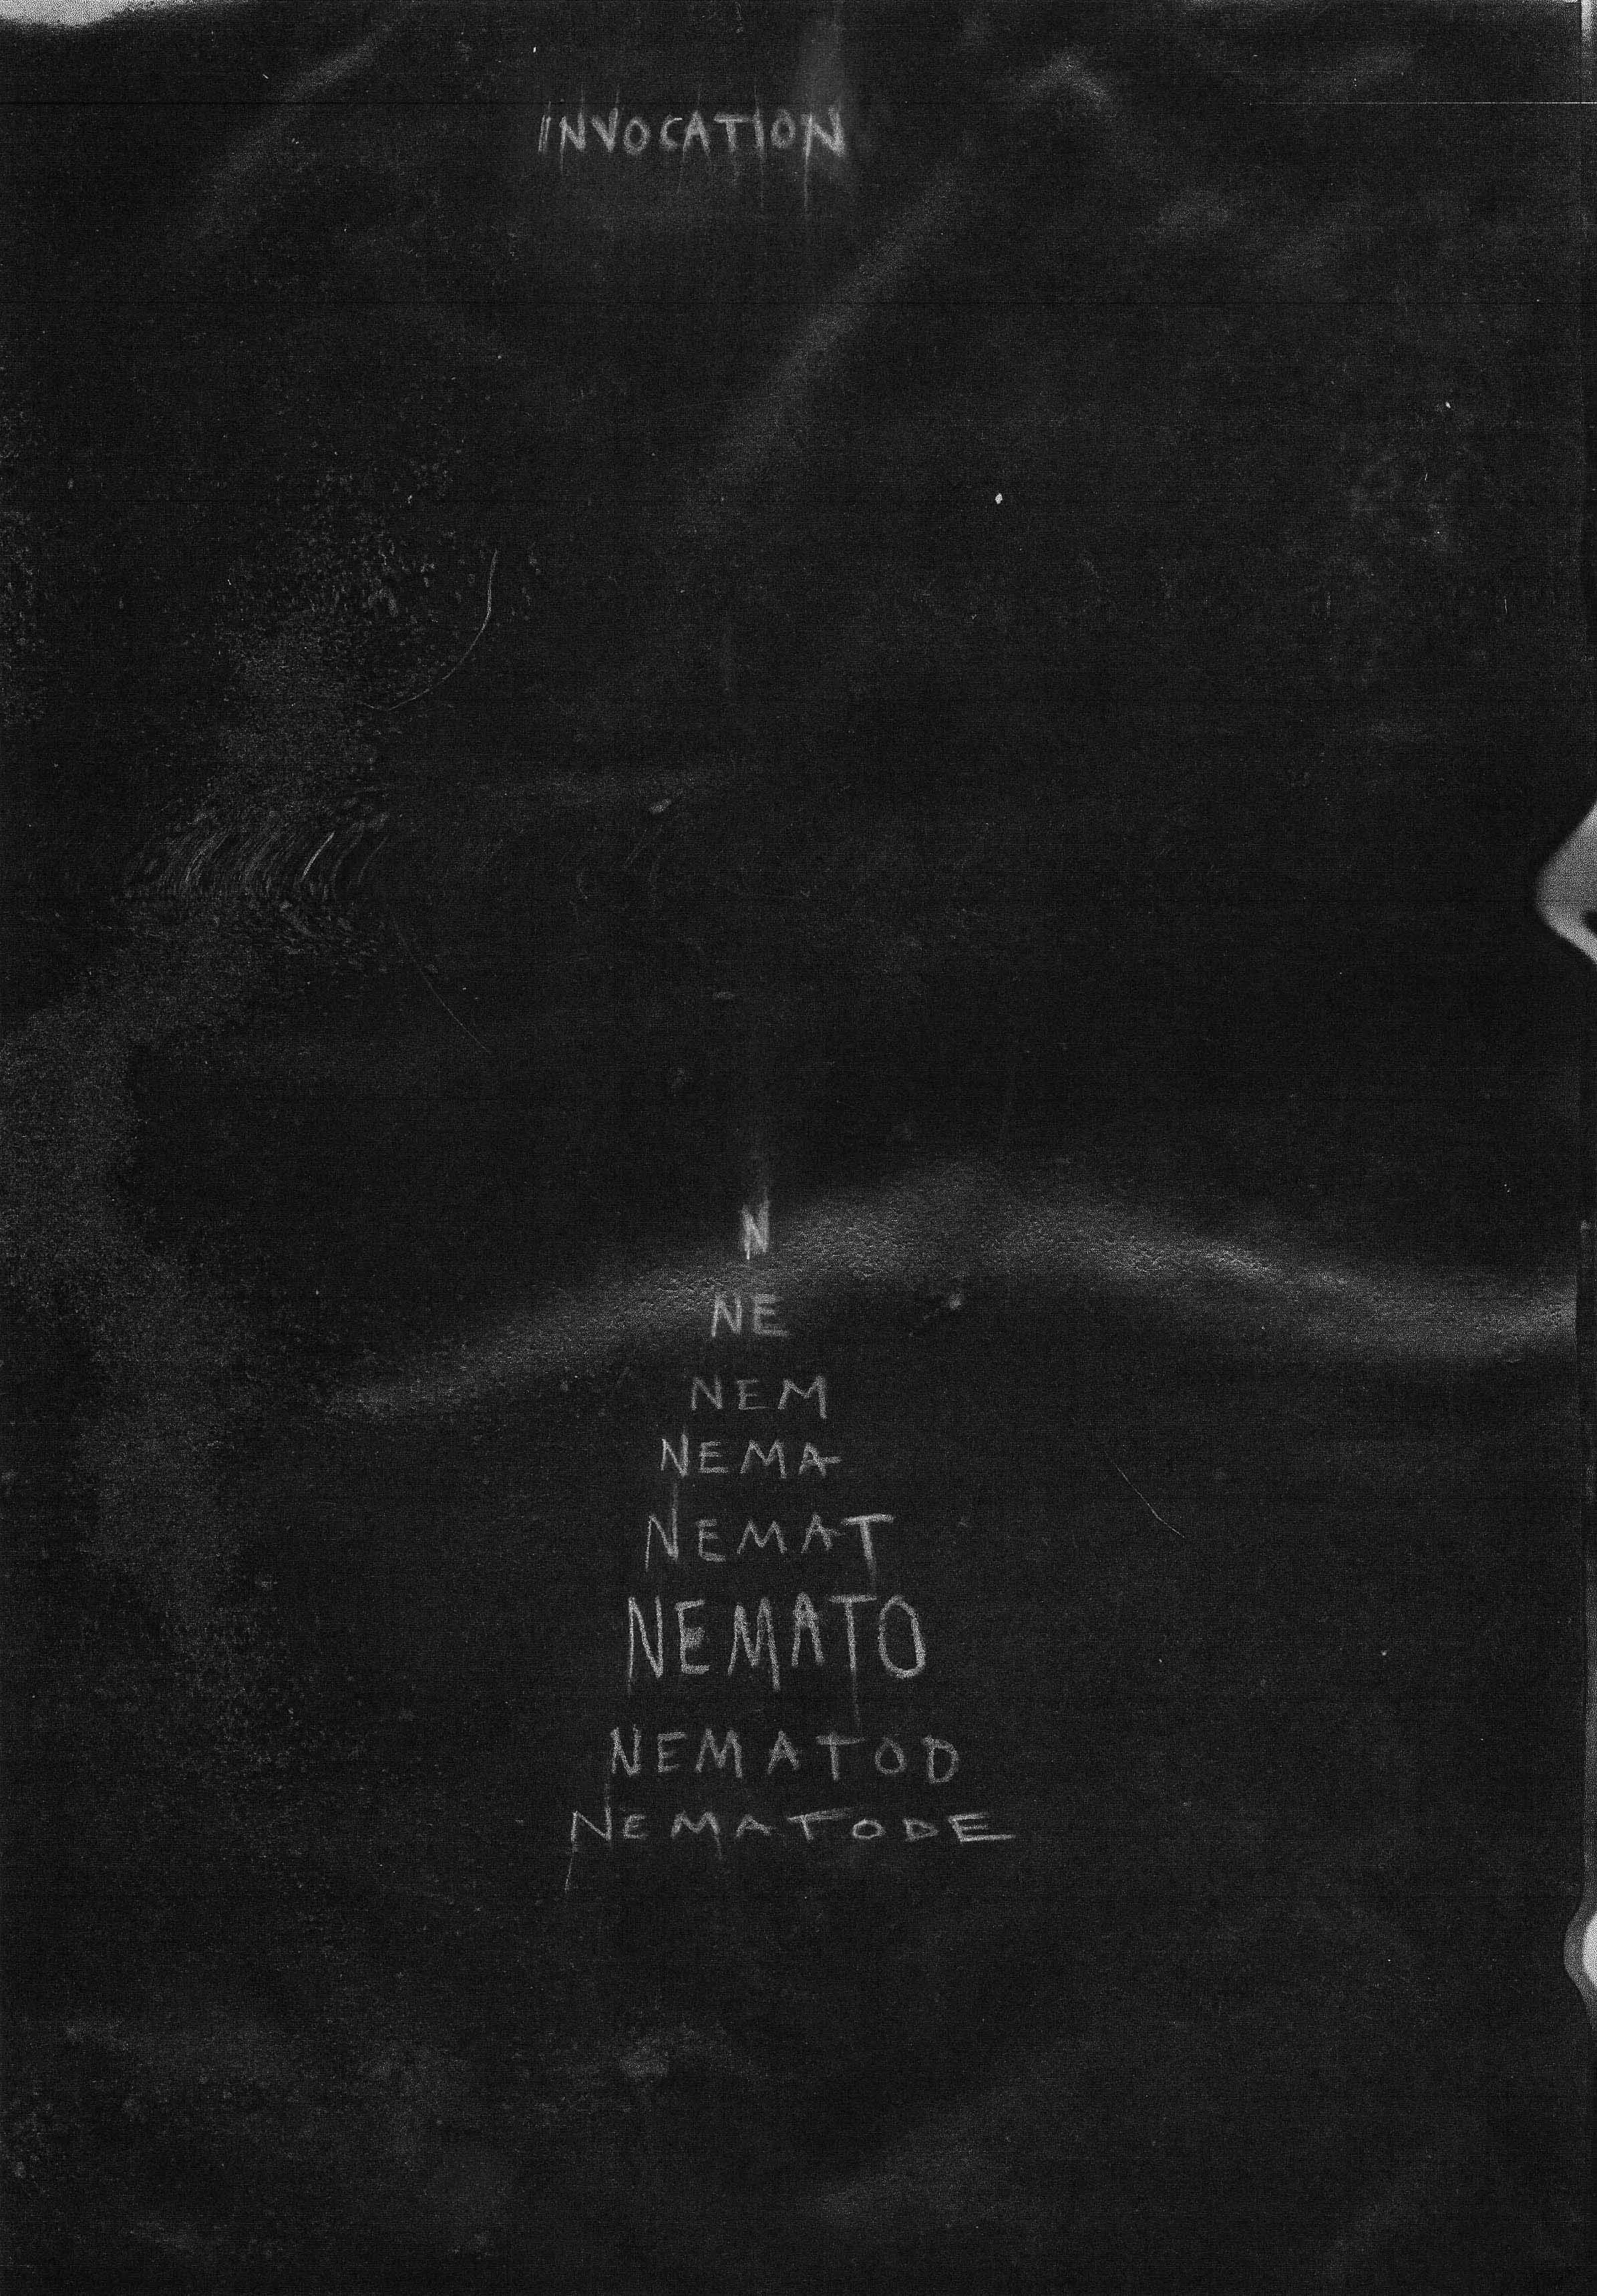 INVOCATION
N
NE
NEM
NEMA
NEMAT
NEMATO
NEMATOD
NEMATODE